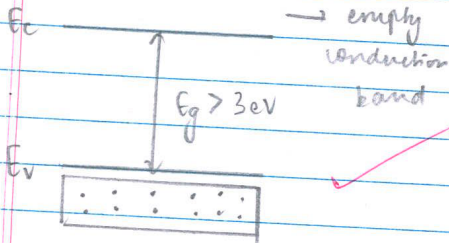 Ec → empty
conduction
band
Eg > 3eV
Ev